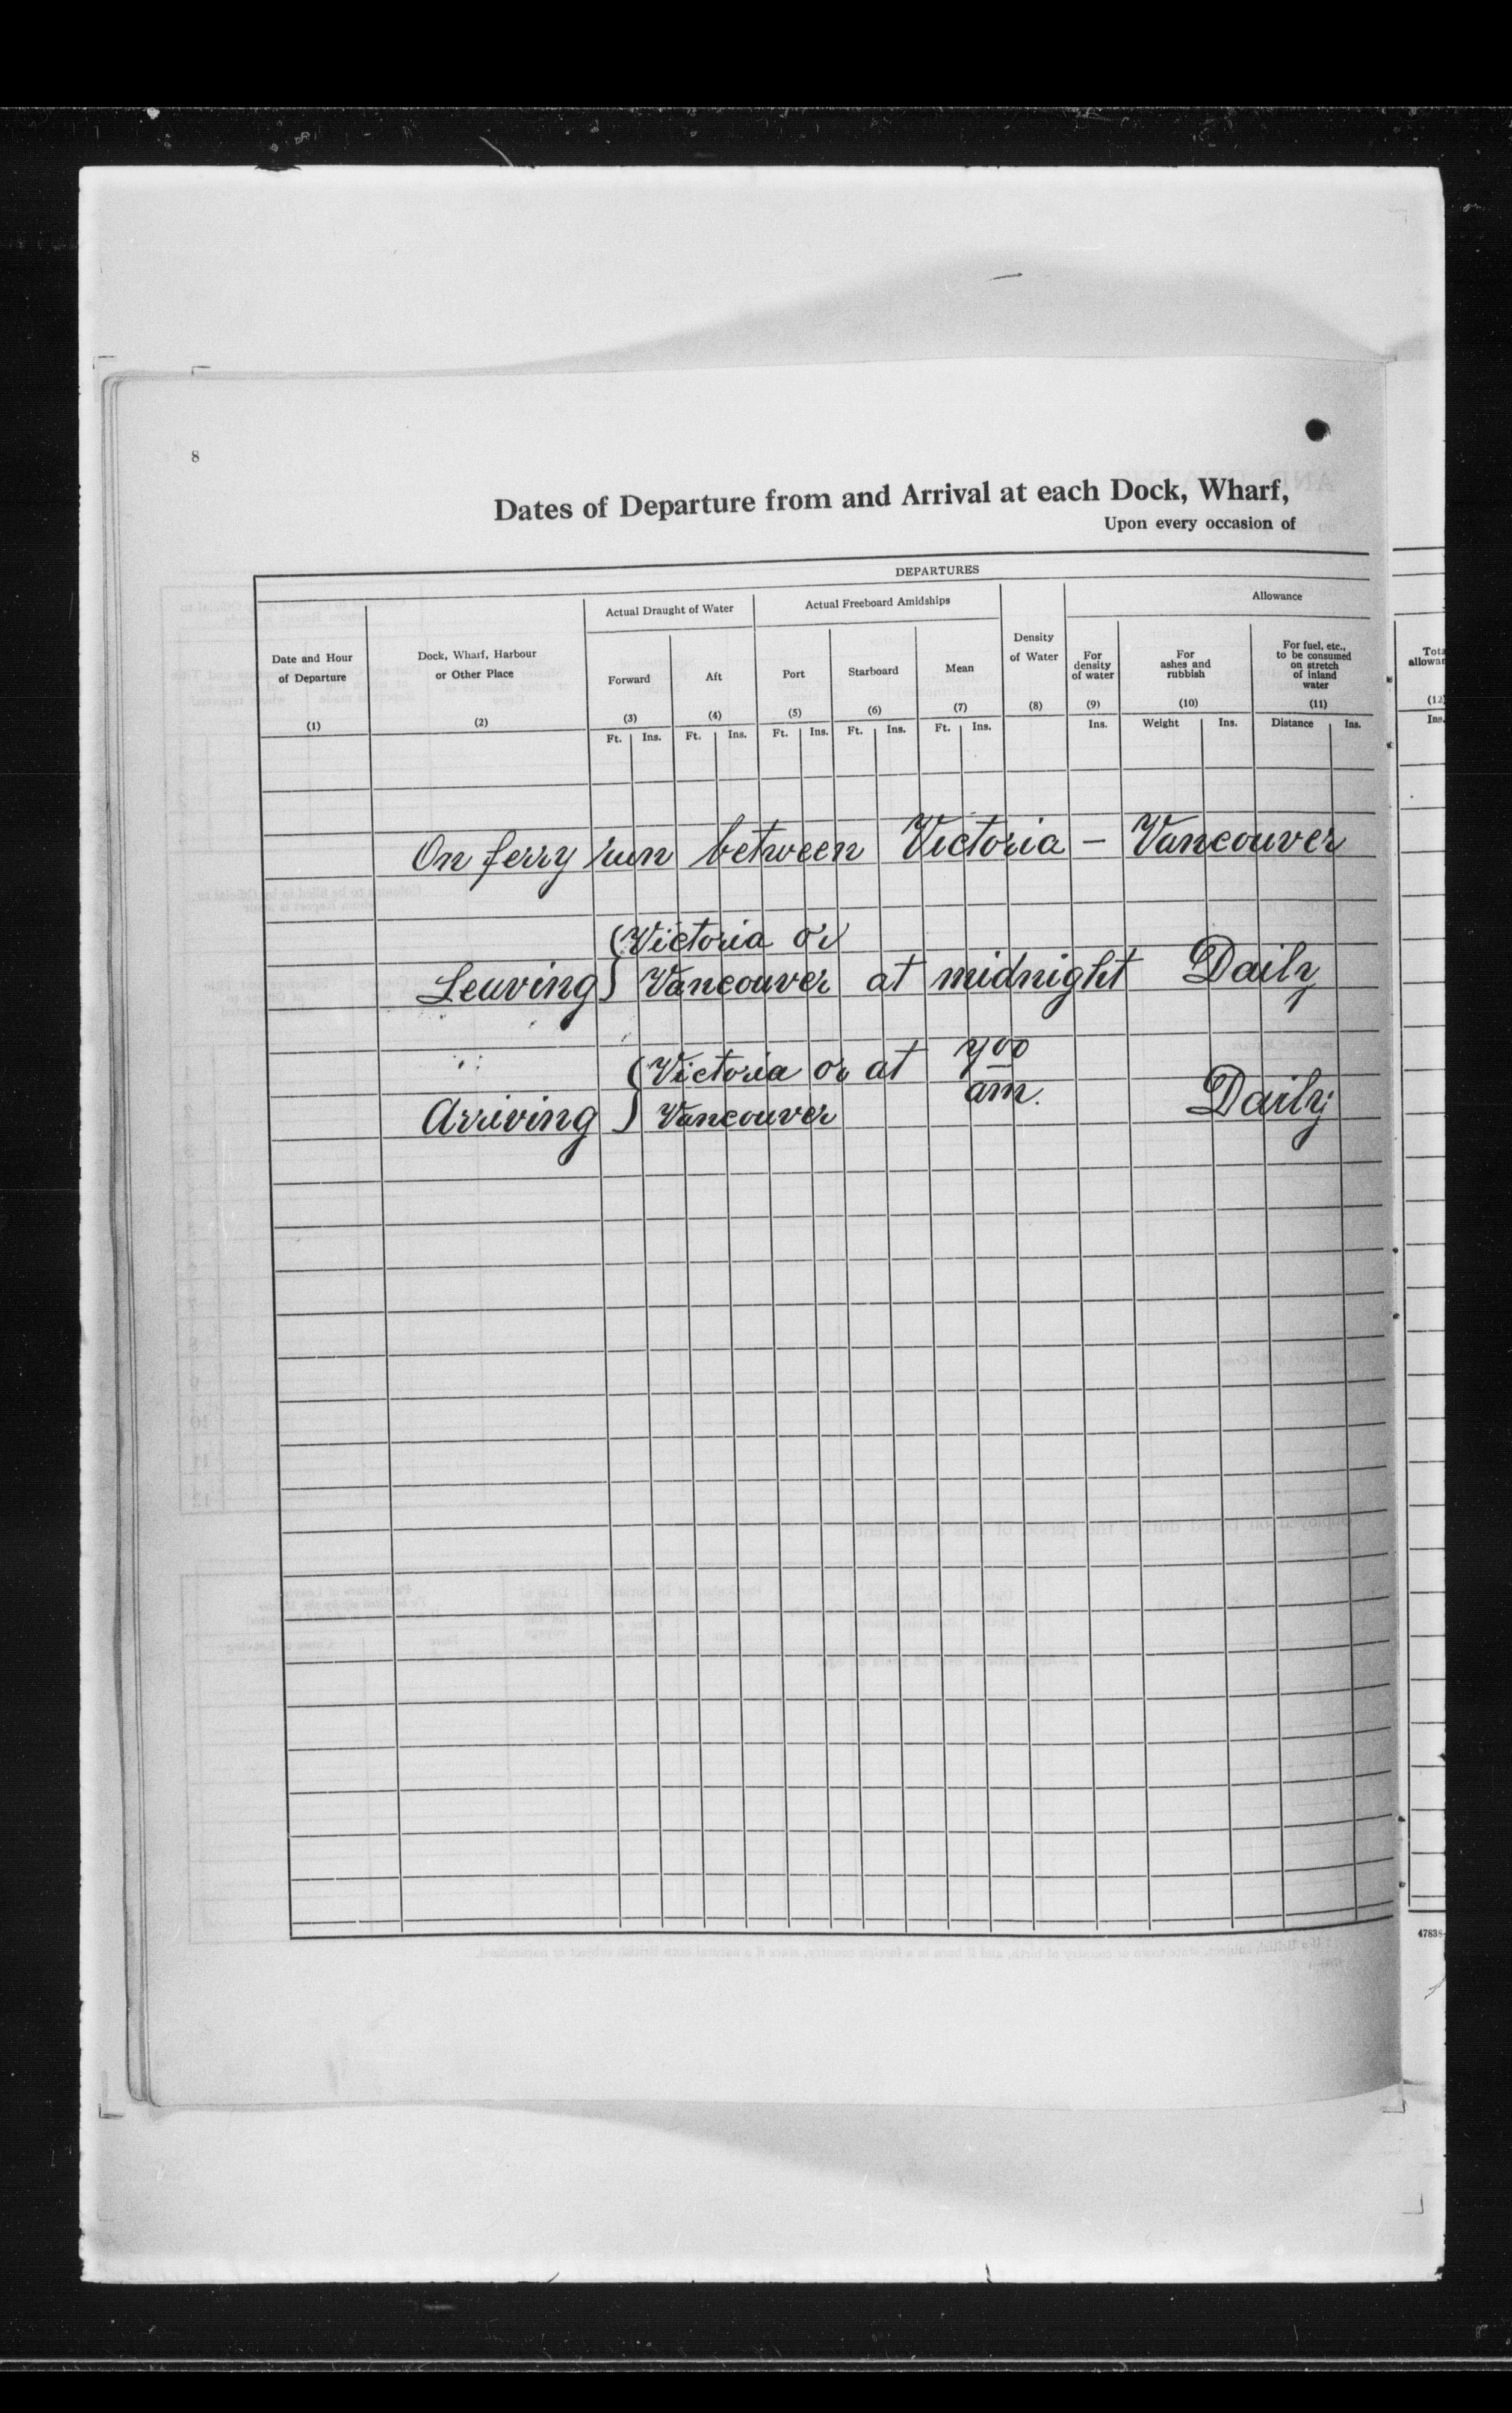 8
Dates of Departure from and Arrival at each Dock, Wharf,
Upon every occasion of
DEPARTURES
Date and Hour
of Departure
(1)
Dock, Wharf, Harbour
or Other Place
(2)
Actual Draught of Water
Forward
(3)
Ft. Ins.
Aft
(4)
Ft. Ins.
Actual Freeboard Amidships
Port
(5)
Ft. Ins.
Starboard
(6)
Ft. Ins.
Mean
(7)
Ft. Ins.
Density
of Water
(8)
Allowance
For
density
of water
(9)
Ins.
For
ashes and
rubbish
(10)
Weight Ins.
For fuel, etc.,
to be consumed
on stretch
of inland
water
(11)
Distance Ins.
(12)
Ins.
On ferry run between Victoria - Vancouver
Victoria or
Leaving Vancouver at midnight Daily
Victoria or at 7 00
am.
Arriving Vancouver Daily
47838